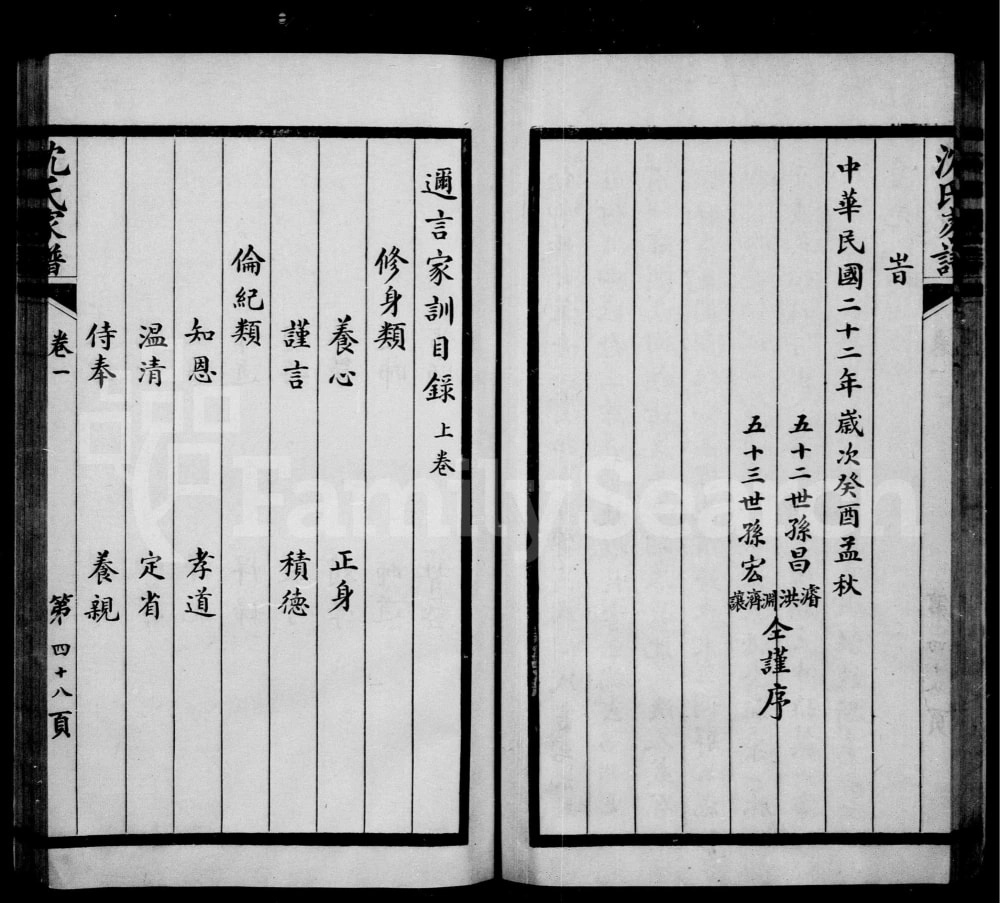 沈氏家譜
旹
中華民國二十二年歲次癸酉孟秋
五十二世孫昌濬洪
五十三世孫宏淵濟讓
仝謹序
邇言家訓目錄 上卷
修身類
養心 正身
謹言 積德
倫紀類
知恩 孝道
温清 定省
侍奉 養親
沈氏家譜 卷一 第四十八頁
FamilySearch